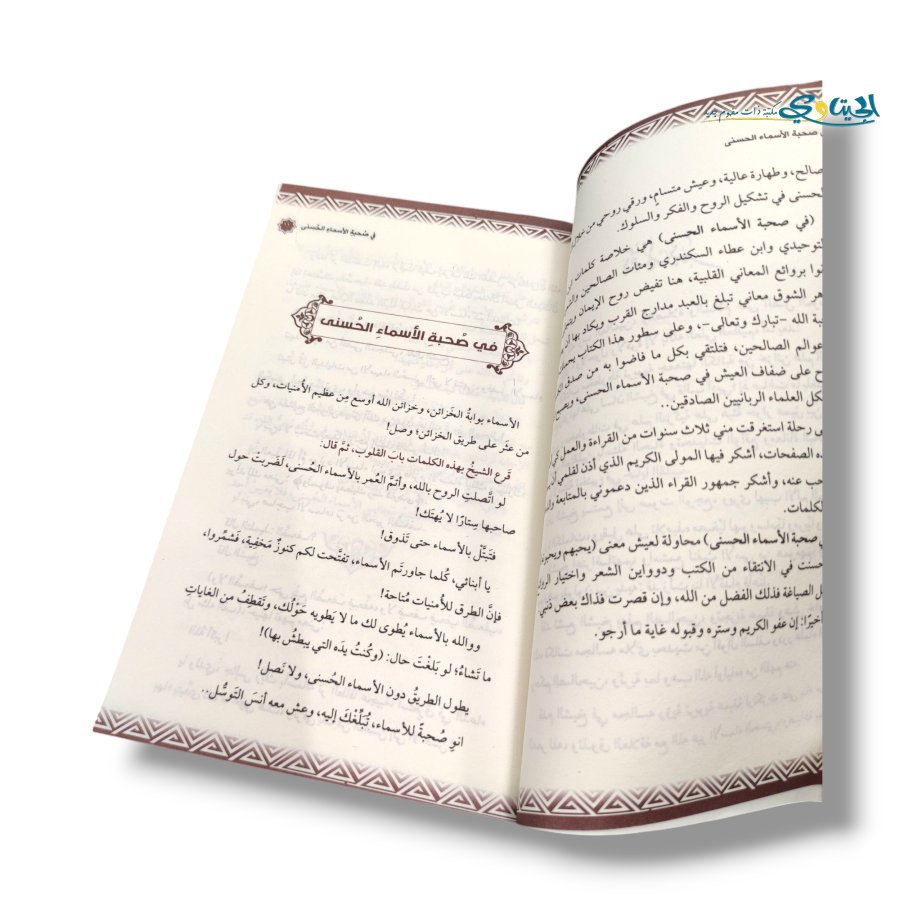 الجيتاوي
مكتبة ذات مفهوم جديد
في صحبة الأسماء الحسنى
صالح، وطهارة عالية، وعيش متسام، ورقي روحي من
الحسنى في تشكيل الروح والفكر والسلوك.
(في صحبة الأسماء الحسنى) هي خلاصة كلمات
التوحيدي وابن عطاء السكندري ومئات الصالحين
بروائع المعاني القلبية، هنا تفيض روح الإيمان
الشوق معاني تبلغ بالعبد مدارج القرب ويكاد بها
الله -تبارك وتعالى-، وعلى سطور هذا الكتاب
عوالم الصالحين، فتلتقي بكل ما فاضوا به من صدق
على ضفاف العيش في صحبة الأسماء الحسنى،
كل العلماء الربانيين الصادقين..
رحلة استغرقت مني ثلاث سنوات من القراءة والعمل
الصفحات، أشكر فيها المولى الكريم الذي أذن لقلمي أن
عنه، وأشكر جمهور القراء الذين دعموني بالمتابعة
الكلمات.
صحبة الأسماء الحسنى) محاولة لعيش معنى (يحبهم ويحبونه
في الانتقاء من الكتب ودوواين الشعر واختيار
الصياغة فذلك الفضل من الله، وإن قصرت فذاك بعض ذنبي
أخيرًا: إن عفو الكريم وستره وقبوله غاية ما أرجو.
في صُحبةِ الأسماءِ الحُسنى
في صُحبةِ الأسماءِ الحُسنى
الأسماء بوابةُ الخَزائن، وخزائن الله أوسع مِن عظيم الأُمنيات، وكل
من عثَر على طريق الخزائن؛ وصل!
قَرع الشيخُ بهذه الكلمات بابَ القلوب، ثمَّ قال:
لو اتَّصلتِ الروح بالله، وأتمَّ العُمر بالأسماء الحُسنى، لَضَربتْ حول
صاحبها سِتارًا لا يُهتَك!
فتَبتَّل بالأسماء حتى تَذوق!
يا أبنائي، كُلما جاورتم الأسماء، تفتَّحت لكم كنوزٌ مَخفِية، فشمِّروا،
فإنَّ الطرق للأُمنيات مُتاحة!
ووالله بالأسماء يُطوى لك ما لا يَطويه حَوْلُك، وتَقطِفُ من الغاياتِ
ما تَشاءُ؛ لو بَلغْتَ حال: (وكُنتُ يدَه التي يبطُش بها)!
يطول الطريقُ دون الأسماء الحُسنى، ولا نَصل!
انوِ صُحبةً للأسماء، تُبلِّغْكَ إليه، وعش معه أنسَ التَوسُّل..